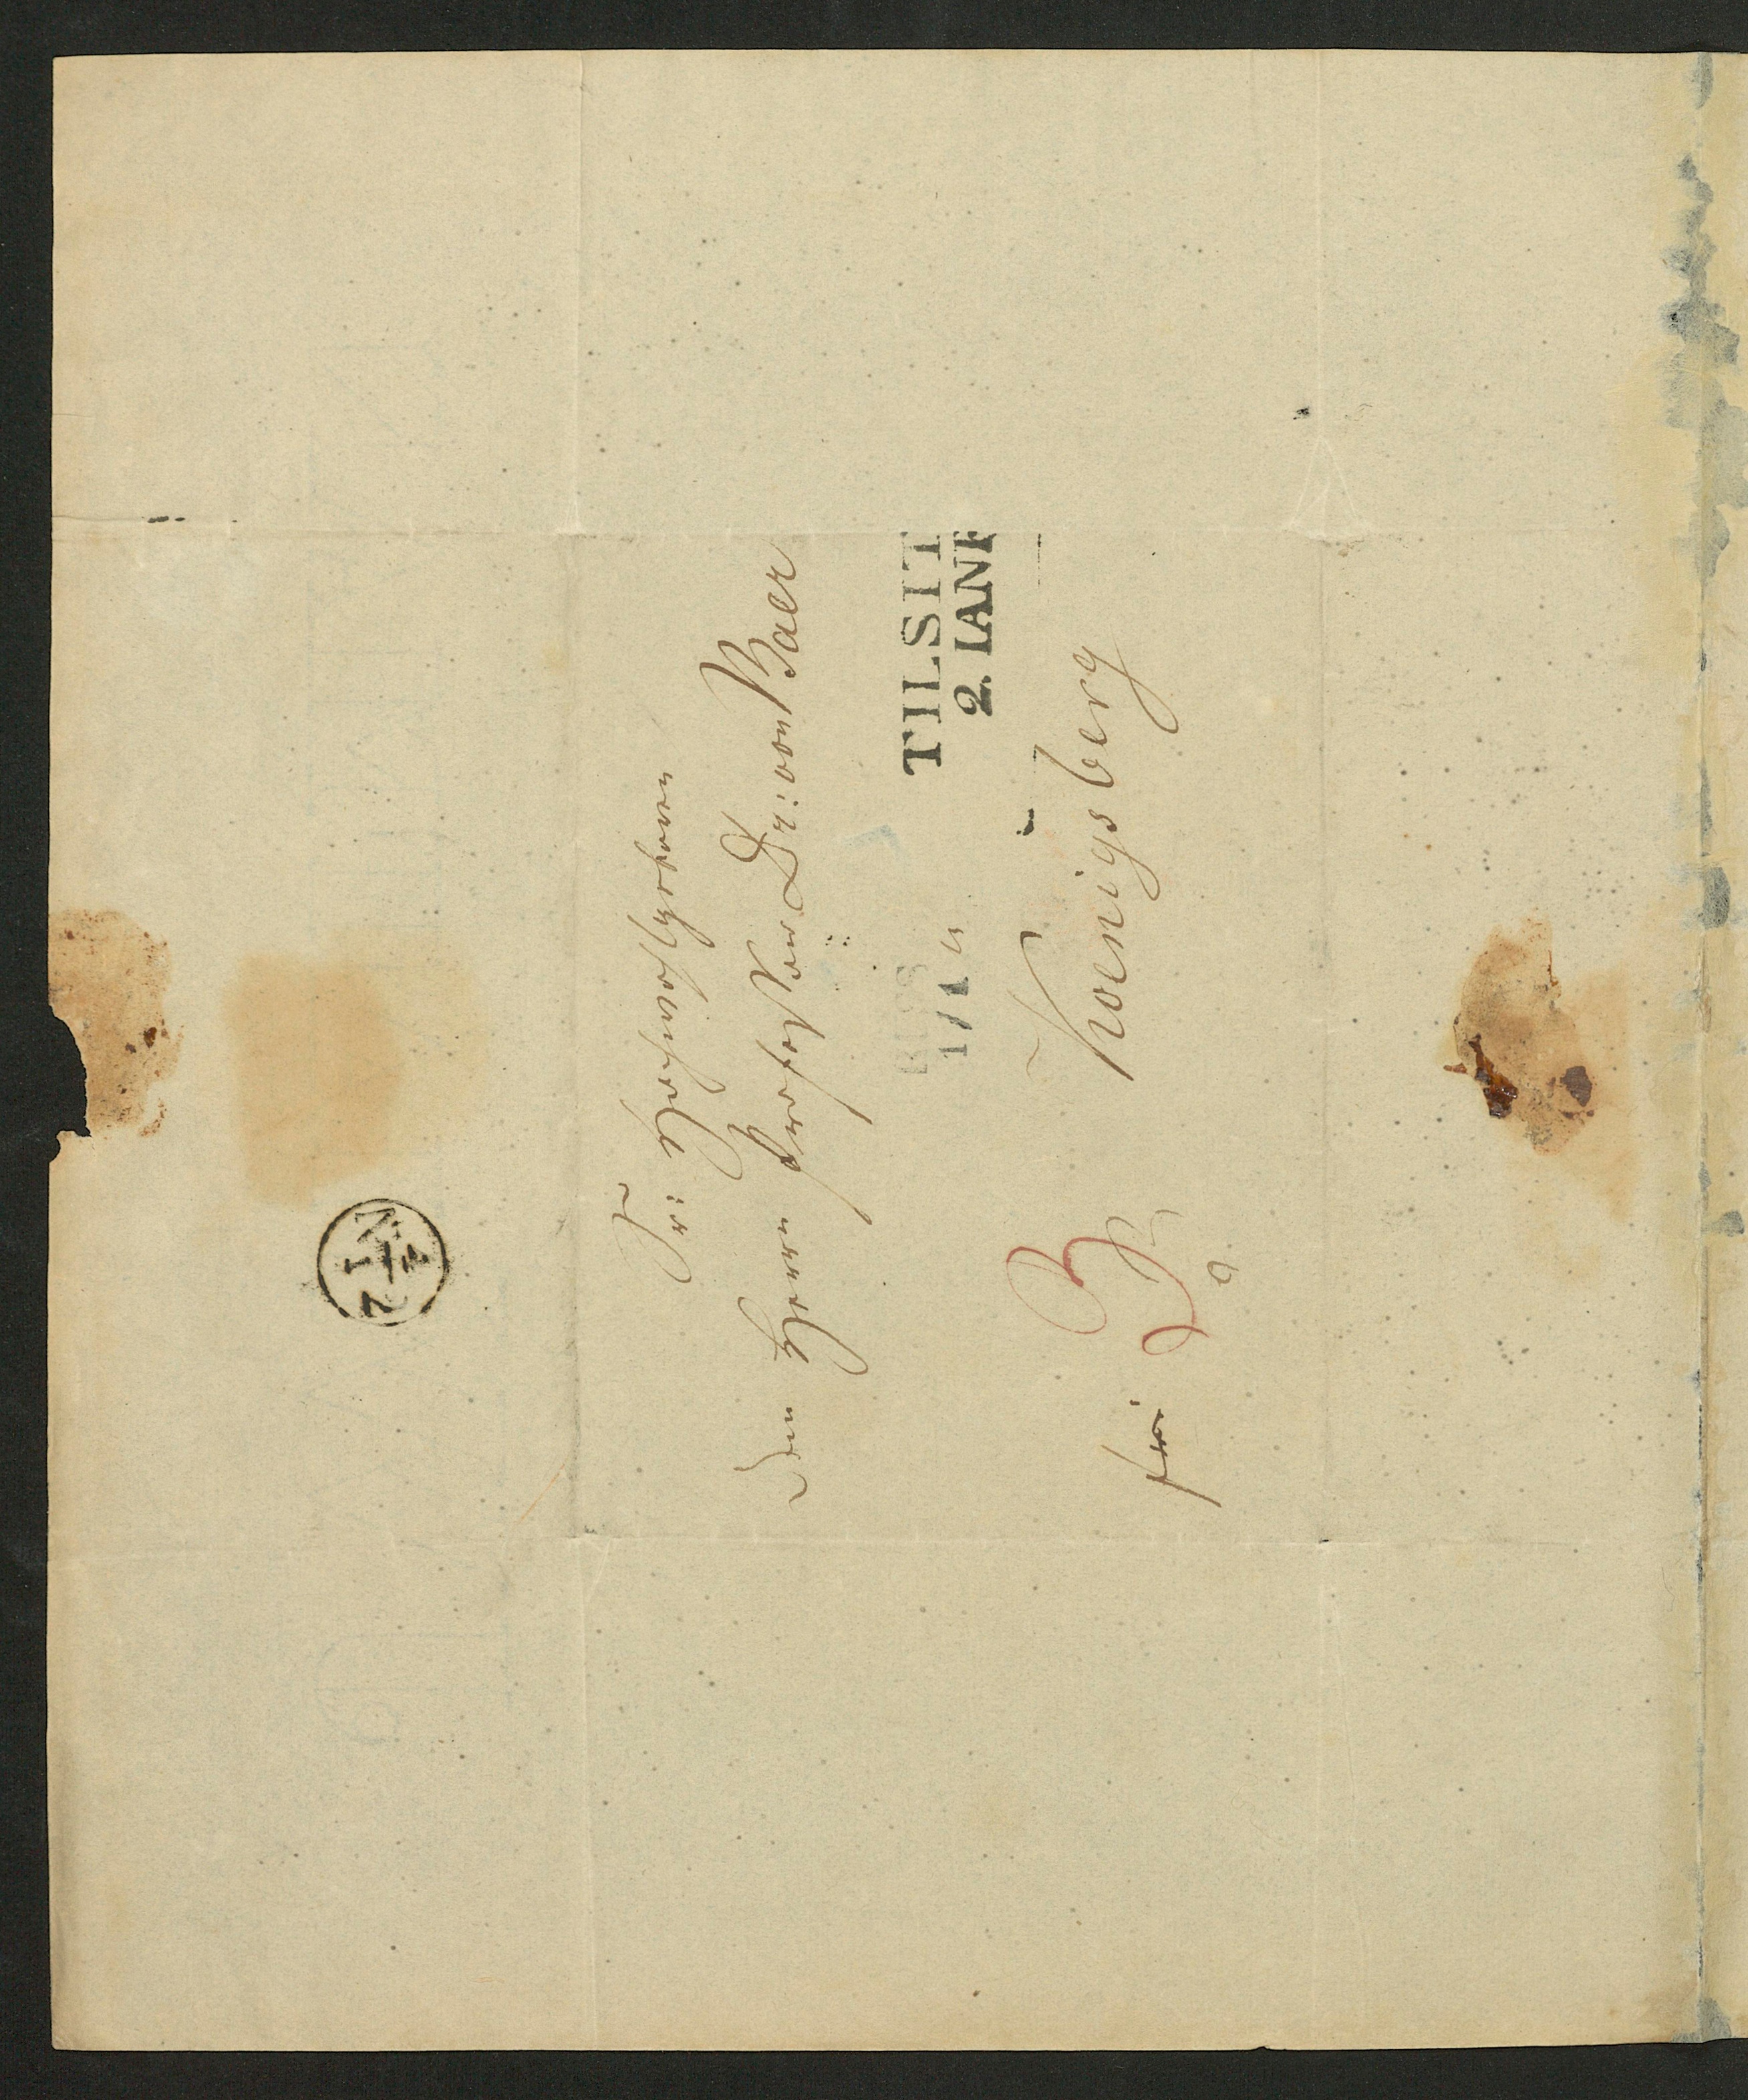 Sr: Hochwohlgeboren
dem Herrn Professor Dr: von Baer
TILSIT
2. IANR
1/1
Koenigsberg
frei
N 1